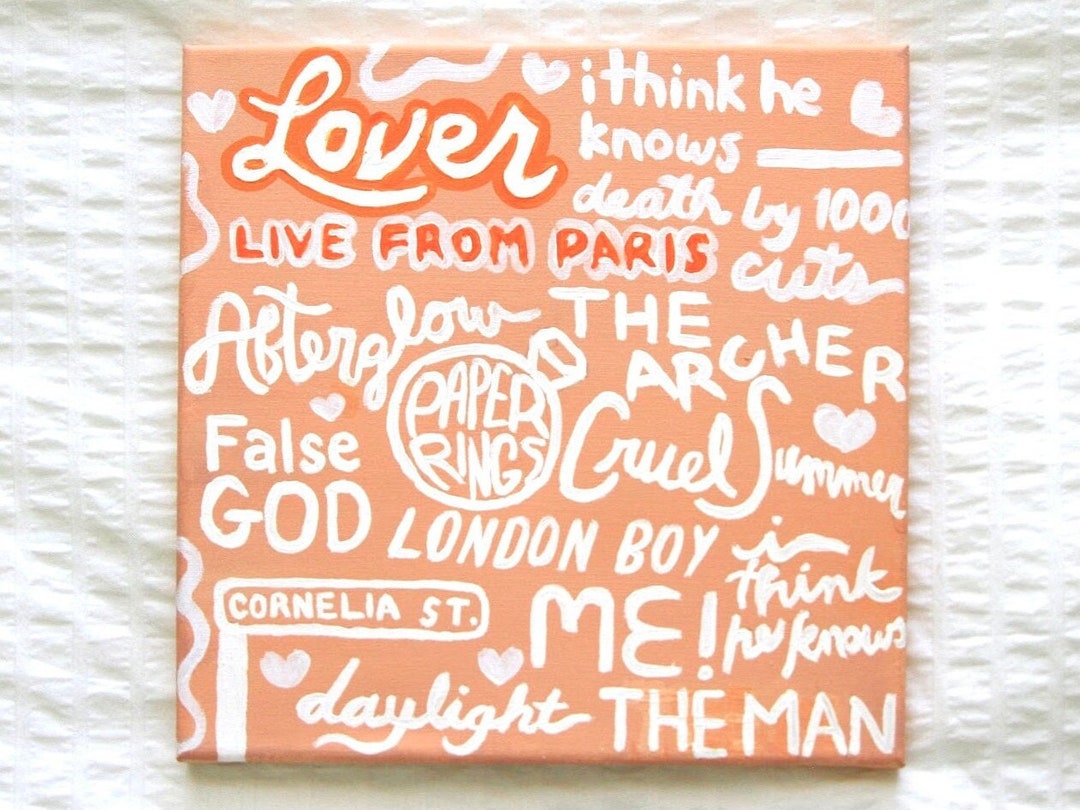 Lover
LIVE FROM PARIS
i think he
knows
death by 1000
cuts
Afterglow
THE
ARCHER
PAPER
RINGS
Cruel Summer
False
GOD
LONDON BOY
i
think
he knows
CORNELIA ST.
ME!
daylight
THE MAN